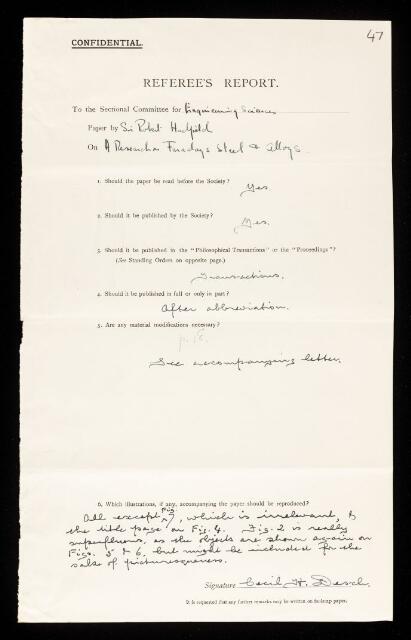 47
CONFIDENTIAL.
REFEREE'S REPORT.
To the Sectional Committee for Engineering Sciences
Paper by Sir Robert Hadfield
On A Research on Faradays Steel & Alloys
1. Should the paper be read before the Society?
Yes.
2. Should it be published by the Society?
Yes.
3. Should it be published in the "Philosophical Transactions" or the "Proceedings"?
(See Standing Orders on opposite page.)
Transactions.
4. Should it be published in full or only in part?
After abbreviation.
5. Are any material modifications necessary?
See accompanying letter.
6. Which illustrations, if any, accompanying the paper should be reproduced?
All except Fig. 7, which is irrelevant, &
the title page on Fig. 4. Fig. 2 is really
superfluous, as the objects are shown again on
Figs. 5 & 6, but might be included for the
sake of picturesqueness.
Signature Cecil H. Desch.
It is requested that any further remarks may be written on facing paper.